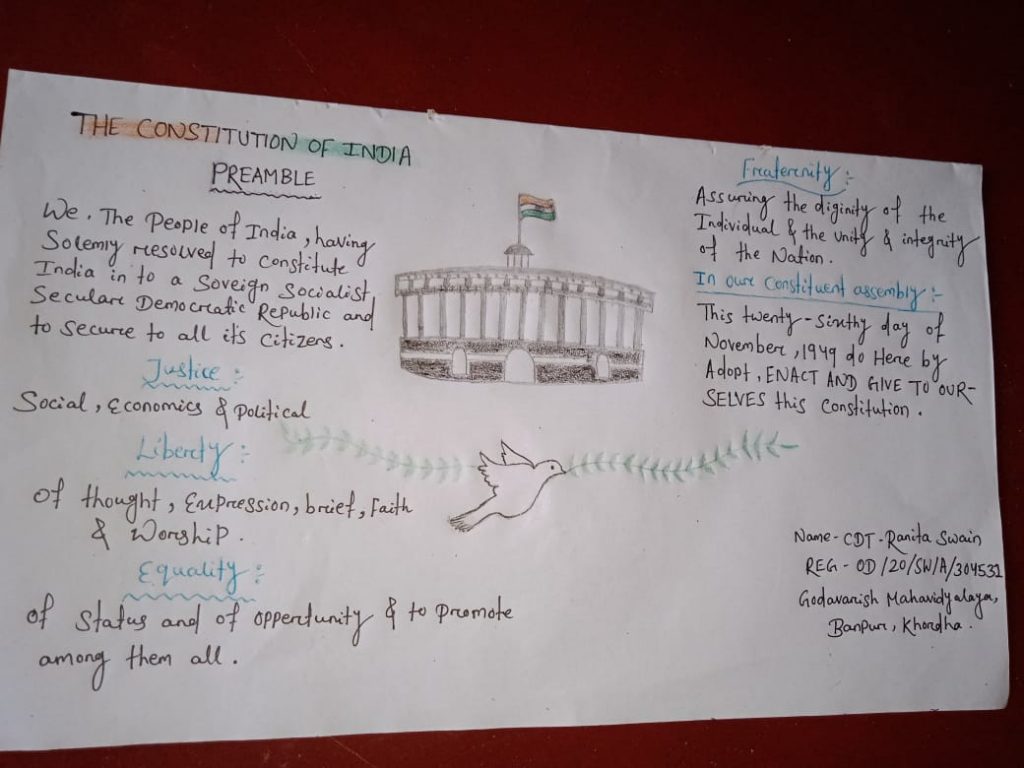 THE CONSTITUTION OF INDIA
PREAMBLE
We. The People of India, having
Solemly resolved to constitute
India in to a Soveign Socialist
Secular Democratic Republic and
to secure to all it's Citizens.
Justice :-
Social, Economics & Political
Liberty :-
of thought, Expression, brief, Faith
& Worship.
Equality :-
of Status and of oppertunity & to promote
among them all.
Fraterenity :-
Assuring the diginity of the
Individual & the Unity & integrity
of the Nation.
In our Constituent assembly :-
This twenty-sinthy day of
November, 1949 do Here by
Adopt, ENACT AND GIVE TO OUR-
SELVES this Constitution.
Name - CDT - Ranita Swain
REG - OD/20/SW/A/304532
Godavarish Mahavidyalaya,
Banpur, Khordha.